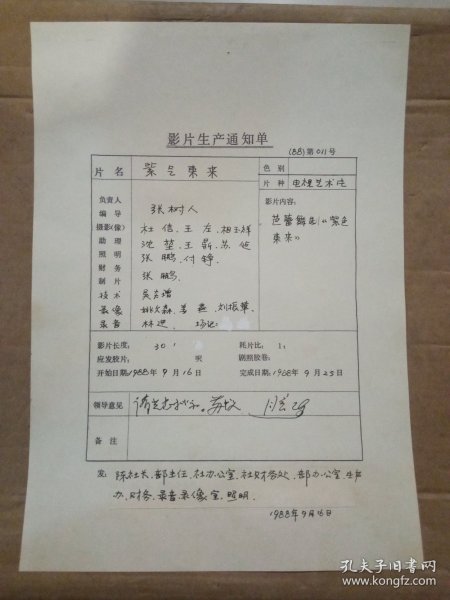 影片生产通知单
(88)第011号
片名 紫气东来
色别
片种 电视艺术片
负责人
编导 张树人
影片内容:
芭蕾舞剧《紫气
东来》
摄影(像) 杜信、王左、相玉祥
助理 沈堃、王新、苏
照明 张鹏、付铮
财务
制片 张鹏
技术
录像 刘振华
录音 林进 场记:
影片长度: 30' 耗片比: 1:
应发胶片: 呎 剧照胶卷:
开始日期:1988年9月16日 完成日期:1988年9月25日
领导意见
备注
发: 陈社长、部主任、社办公室、社财务处、部办公室、生产
办、财务、录音、录像室、照明.
1988年9月15日
孔夫子旧书网
www.kongfz.com